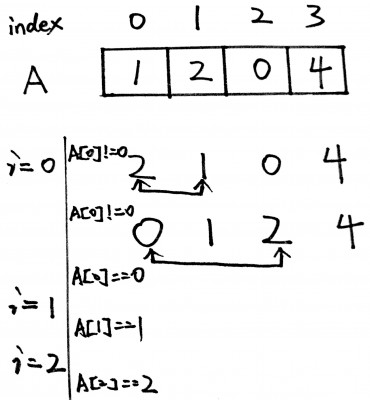 index 0 1 2 3
A 1 2 0 4
i=0 A[0]!=0 2 1 0 4
A[0]!=0 0 1 2 4
A[0]==0
i=1 A[1]==1
i=2 A[2]==2